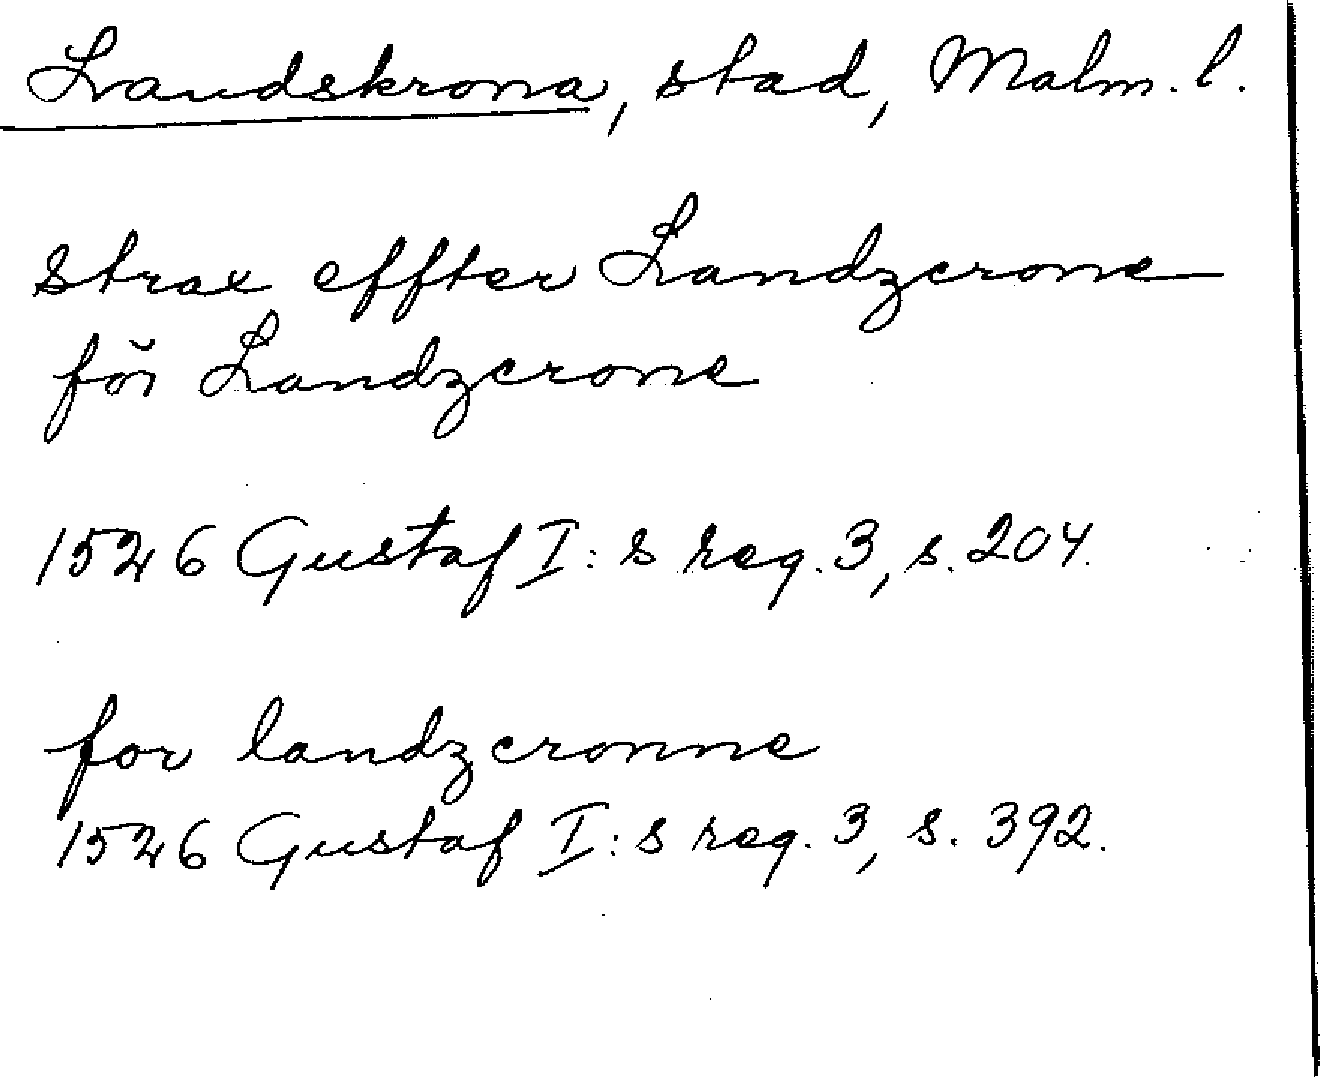 Landskrona, stad, Malm. l.
strax effter Landzcrone
för Landzcrone
1526 Gustaf I:s reg. 3, s. 204.
for landzcronne
1526 Gustaf I:s reg. 3, s. 392.